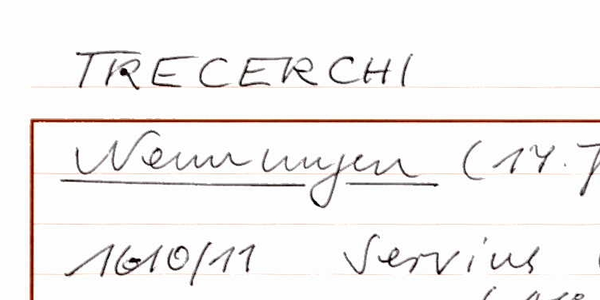 TRECERCHI
Nennungen (17. J
1610/11 Servius (